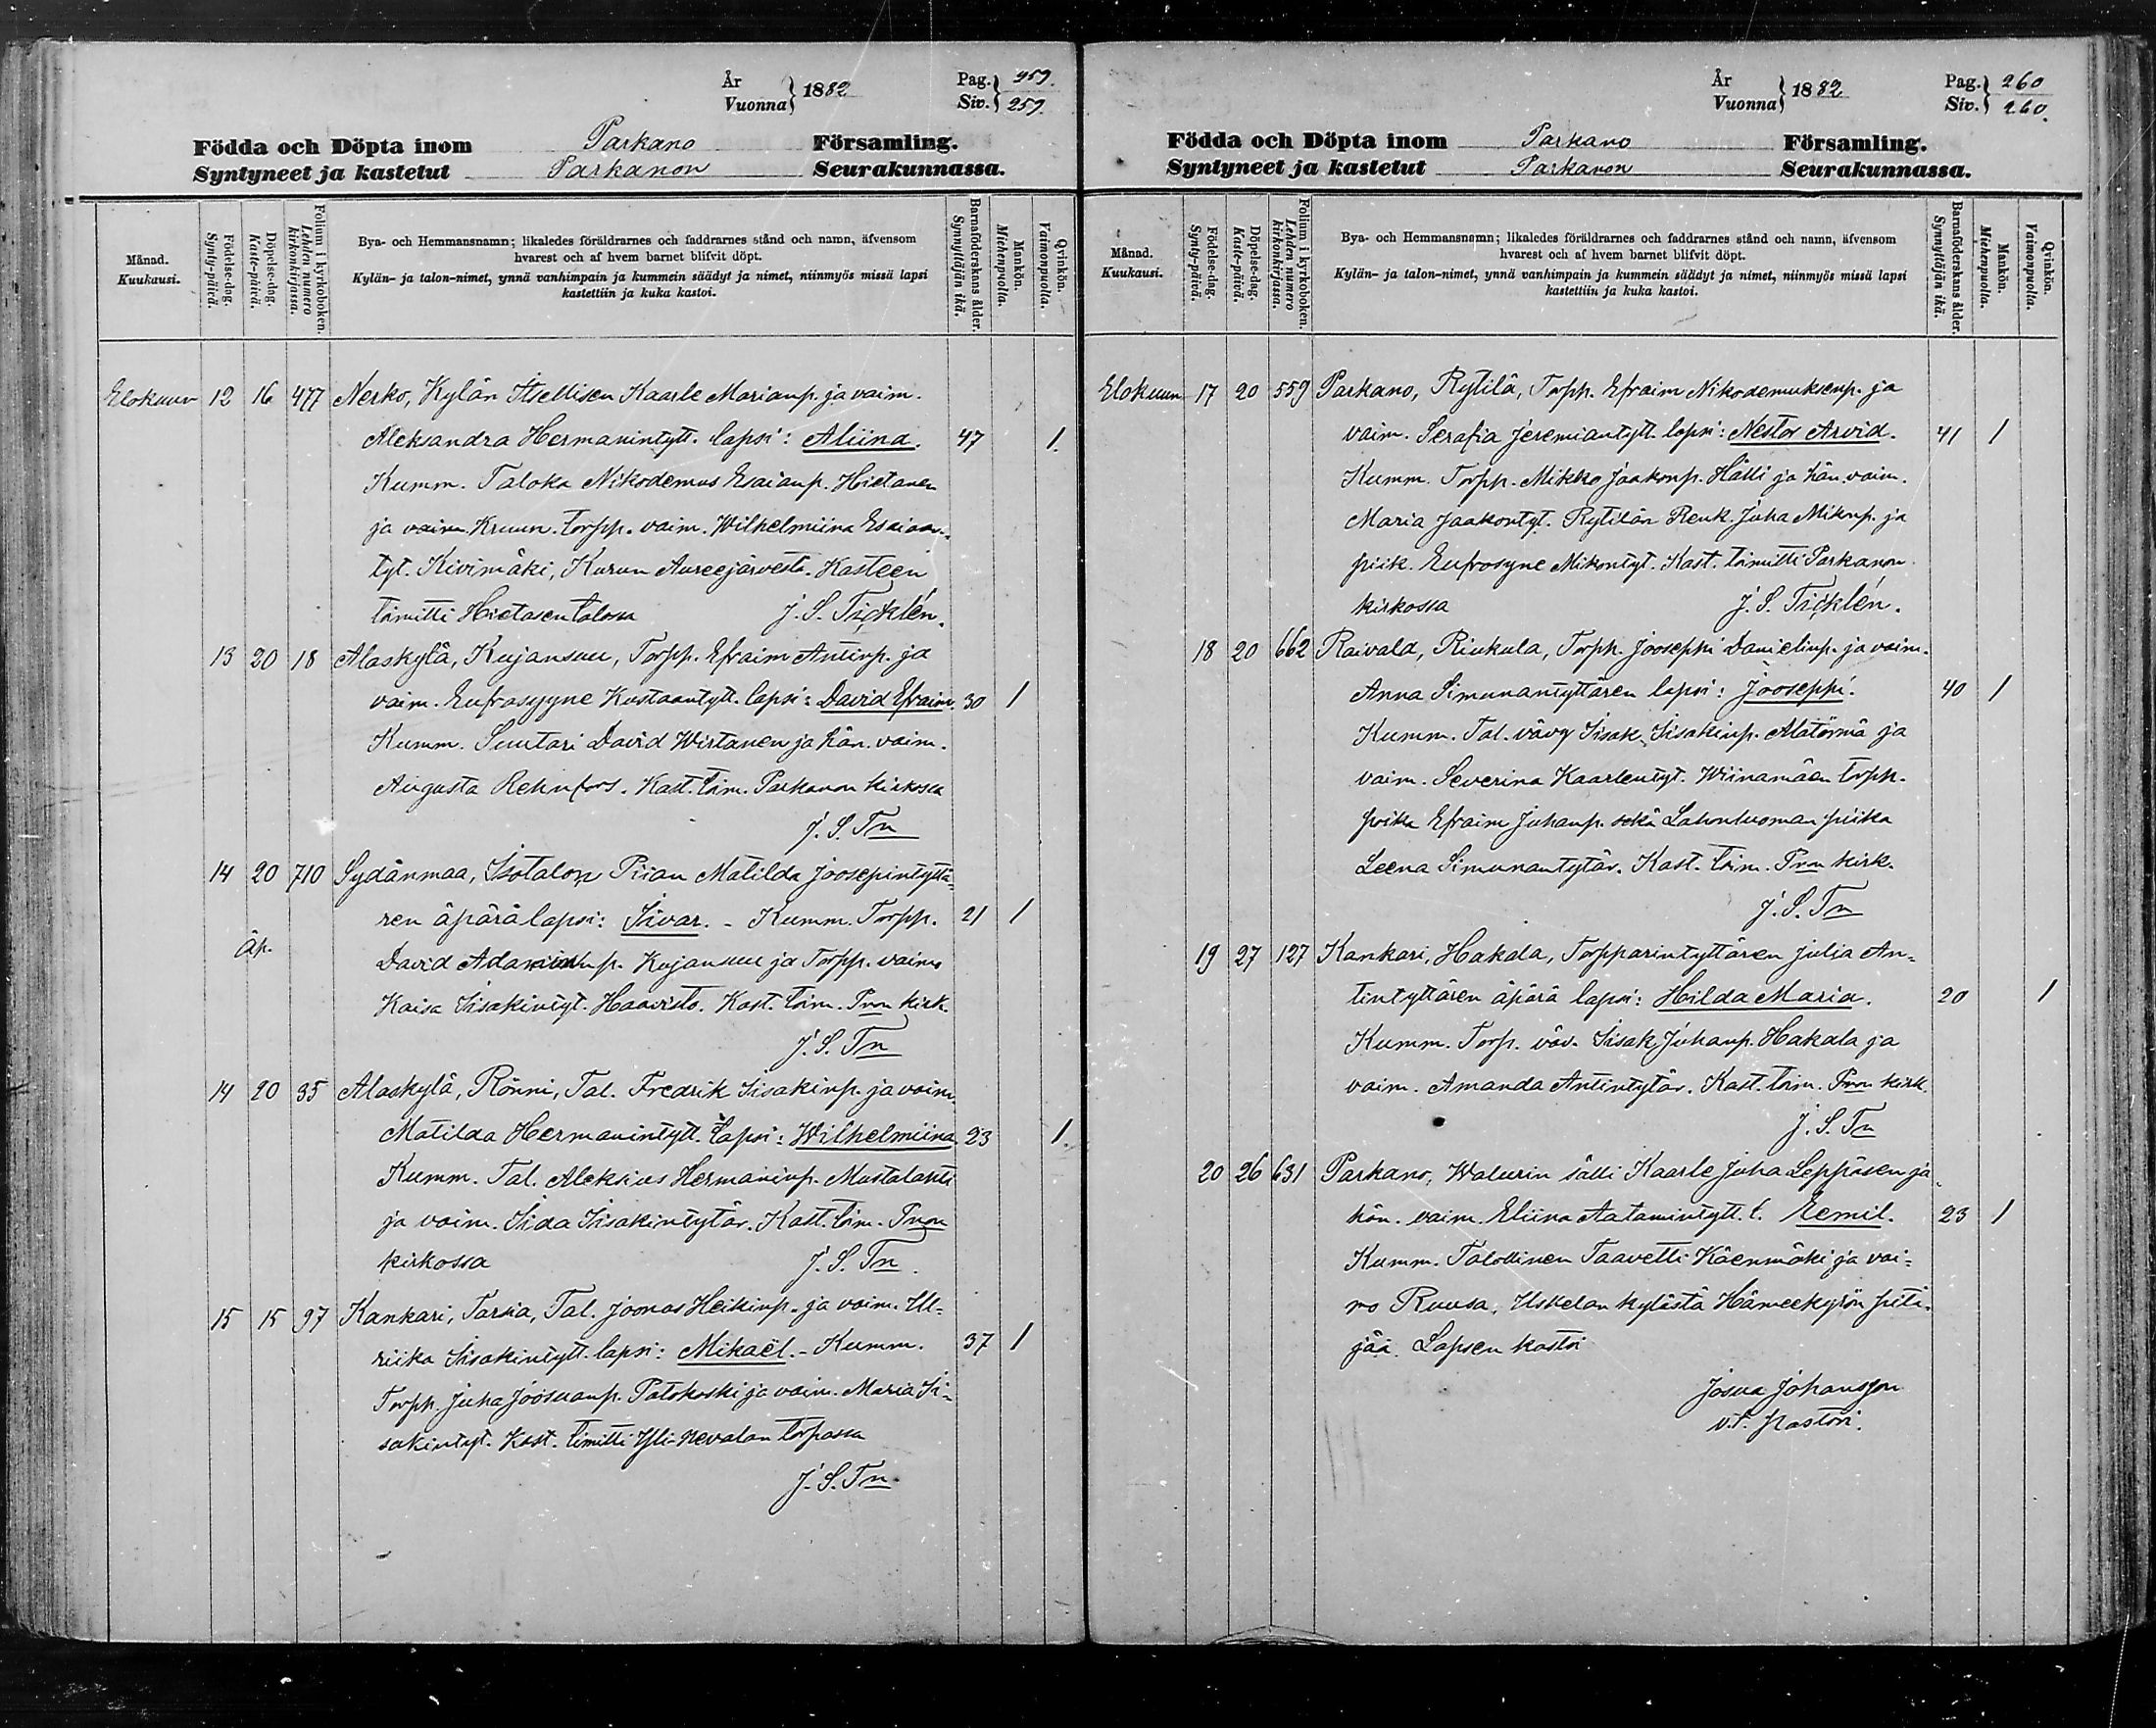 År
Vuonna } 1882
Pag. 259.
Siv. 259.
Födda och Döpta inom Parkano Församling.
Syntyneet ja kastetut Parkanon Seurakunnassa.
Månad.
Kuukausi.
Födelse-dag.
Synty-päivä.
Döpelse-dag.
Kaste-päivä.
Folium i kyrkoboken.
Lehden numero kirkonkirjassa.
Bya- och Hemmansnamn; likaledes föräldrarnes och faddrarnes stånd och namn, äfvensom
hvarest och af hvem barnet blifvit döpt.
Kylän- ja talon-nimet, ynnä vanhimpain ja kummein säädyt ja nimet, niinmyös missä lapsi
kastettiin ja kuka kastoi.
Barnaföderskans ålder.
Synnyttäjän ikä.
Mankön.
Miehenpuolia.
Qvinkön.
Vaimonpuolia.
Elokuun 12 16 477 Nerko, Kylän Itsellisen Kaarle Marianp. ja vaim.
Aleksandra Hermanintytt. lapsi: Aliina. 47 1.
Kumm. Taloka Nikodemus Esaianp. Hietanen
ja vaim Kruun. torpp. vaim. Wilhelmiina Esaian-
tyt. Kivimäki, Kurun Aureejärvestä. Kasteen
toimitti Hietasen talossa J. S. Ticklén.
13 20 18 Alaskylä, Kujansuu, Torpp. Efraim Antinp. ja
vaim. Eufrosyyne Kustaantytt. lapsi: David Efraim. 30 1
Kumm. Suutari David Wirtanen ja hän. vaim.
Augusta Rehnfors. Kast. toim. Parkanon kirkossa
J. S. Tn
14 20 710 Sydänmaa, Isotalon Piian Matilda Joosepintyttä-
ren äpärä lapsi: Iivar. - Kumm. Torpp. 21 1
äp.
David Adaminp. Kujansuu ja Torpp. vaimo
Kaisa Iisakintyt. Haavisto. Kast. toim. Pnon kirk.
J. S. Tn
14 20 35 Alaskylä, Rönni, Tal. Fredrik Iisakinp. ja vaim.
Matilda Hermanintytt. lapsi: Wilhelmiina 23 1.
Kumm. Tal. Aleksius Hermaninp. Mustalahti
ja vaim. Iida Iisakintytär. Kast. toim. Pnon
kirkossa J. S. Tn.
15 15 97 Kankari, Tarsia, Tal. Joonas Heikinp. ja vaim. Ul-
riika Iisakintytt. lapsi: Mikaël. - Kumm. 37 1
Torpp. Juha Joosuanp. Patokoski ja vaim. Maria Ii-
sakintyt. Kast. toimitti Yli-Nevalan torpassa
J. S. Tn.
År
Vuonna } 1882
Pag. 260
Siv. 260.
Födda och Döpta inom Parkano Församling.
Syntyneet ja kastetut Parkanon Seurakunnassa.
Månad.
Kuukausi.
Födelse-dag.
Synty-päivä.
Döpelse-dag.
Kaste-päivä.
Folium i kyrkoboken.
Lehden numero kirkonkirjassa.
Bya- och Hemmansnamn; likaledes föräldrarnes och faddrarnes stånd och namn, äfvensom
hvarest och af hvem barnet blifvit döpt.
Kylän- ja talon-nimet, ynnä vanhimpain ja kummein säädyt ja nimet, niinmyös missä lapsi
kastettiin ja kuka kastoi.
Barnaföderskans ålder.
Synnyttäjän ikä.
Mankön.
Miehenpuolia.
Qvinkön.
Vaimonpuolia.
Elokuun 17 20 559 Parkano, Rytilä, Torpp. Efraim Nikodemuksenp. ja
vaim. Serafia Jeremiantytt. lapsi: Nestor Arvid. 41 1
Kumm. Torpp. Mikko Jaakonp. Hätti ja hän. vaim.
Maria Jaakontyt. Rytilän Renk. Juha Mikonp. ja
piik. Eufrosyne Mikontyt. Kast. toimitti Parkanon
kirkossa J. S. Ticklén.
18 20 662 Raivala, Riukula, Torpp. Jooseppi Danielinp. ja vaim.
Anna Simunantyttären lapsi: Jooseppi. 40 1
Kumm. Tal. vävy Iisak Iisakinp. Alatörmä ja
vaim. Severina Kaarlentyt. Wiinamäen torpp.
poika Efraim Juhanp. sekä Lahnluoman piika
Leena Simunantytär. Kast. toim. Pnon kirk.
J. S. Tn
19 27 127 Kankari, Hakala, Torpparintyttären Julia An-
tintyttären äpärä lapsi: Hilda Maria. 20 1
Kumm. Torp. väv. Iisak Juhanp. Hakala ja
vaim. Amanda Antintytär. Kast. toim. Pnon kirk.
J. S. Tn
20 26 631 Parkano, Walurin sälli Kaarle Juha Leppäsen ja
hän. vaim. Eliina Aatamintytt. l. Eemil. 23 1
Kumm. Talollinen Taavetti Käenmäki ja vai-
mo Ruusa, Uskelan kylästä Hämeekyrön pitä-
jää. Lapsen kastoi
Josua Johansson
v.t. pastori.